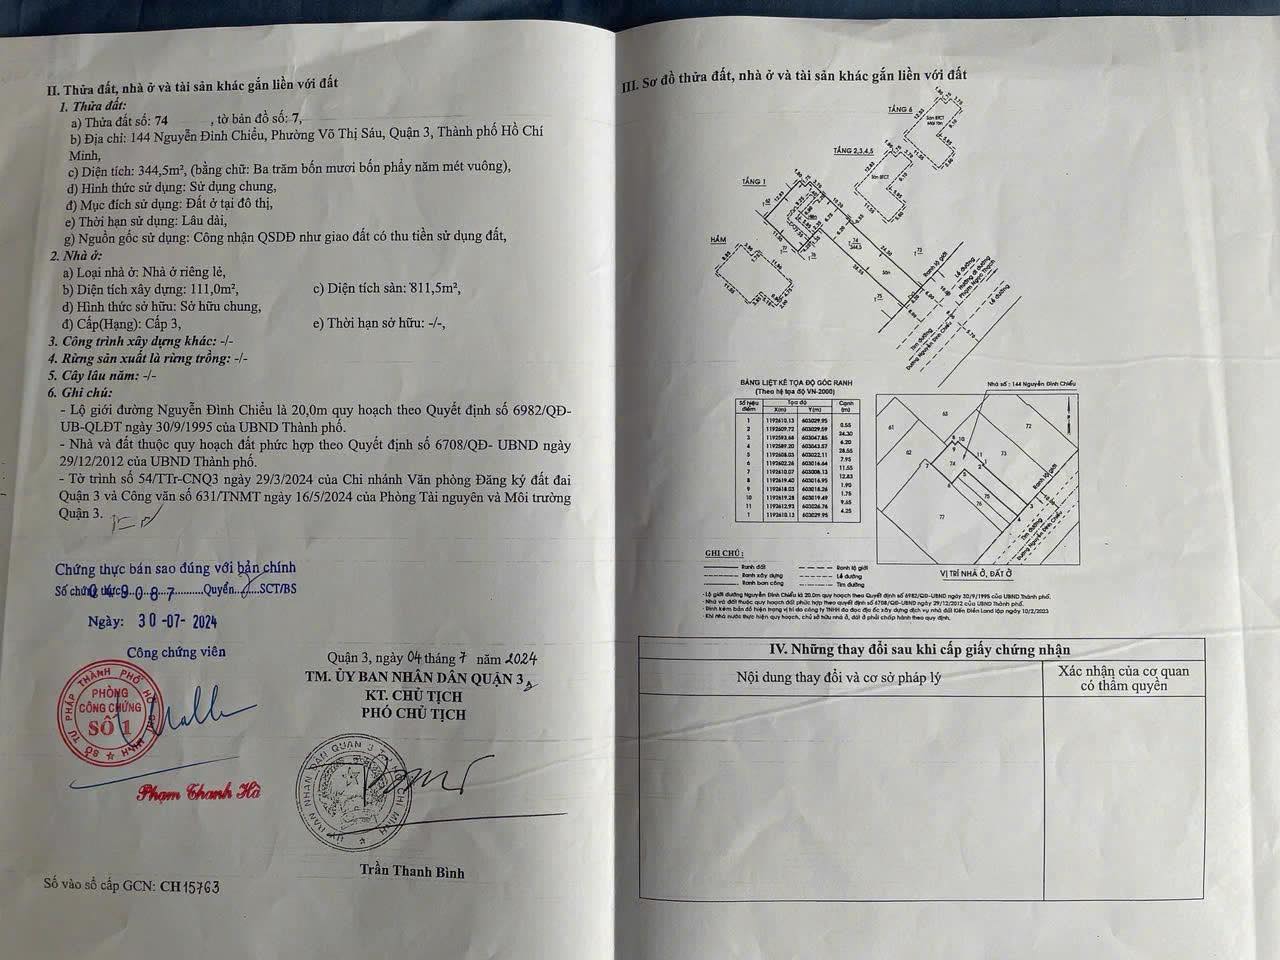 II. Thửa đất, nhà ở và tài sản khác gắn liền với đất
1. Thửa đất:
a) Thửa đất số: 74 , tờ bản đồ số: 7,
b) Địa chỉ: 144 Nguyễn Đình Chiểu, Phường Võ Thị Sáu, Quận 3, Thành phố Hồ Chí
Minh,
c) Diện tích: 344,5m², (bằng chữ: Ba trăm bốn mươi bốn phẩy năm mét vuông),
d) Hình thức sử dụng: Sử dụng chung,
đ) Mục đích sử dụng: Đất ở tại đô thị,
e) Thời hạn sử dụng: Lâu dài,
g) Nguồn gốc sử dụng: Công nhận QSDĐ như giao đất có thu tiền sử dụng đất,
2. Nhà ở:
a) Loại nhà ở: Nhà ở riêng lẻ,
b) Diện tích xây dựng: 111,0m², c) Diện tích sàn: 811,5m²,
d) Hình thức sở hữu: Sở hữu chung,
đ) Cấp(Hạng): Cấp 3, e) Thời hạn sở hữu: -/-,
3. Công trình xây dựng khác: -/-
4. Rừng sản xuất là rừng trồng: -/-
5. Cây lâu năm: -/-
6. Ghi chú:
- Lộ giới đường Nguyễn Đình Chiểu là 20,0m quy hoạch theo Quyết định số 6982/QĐ-
UB-QLĐT ngày 30/9/1995 của UBND Thành phố.
- Nhà và đất thuộc quy hoạch đất phức hợp theo Quyết định số 6708/QĐ- UBND ngày
29/12/2012 của UBND Thành phố.
- Tờ trình số 54/TTr-CNQ3 ngày 29/3/2024 của Chi nhánh Văn phòng Đăng ký đất đai
Quận 3 và Công văn số 631/TNMT ngày 16/5/2024 của Phòng Tài nguyên và Môi trường
Quận 3.
Chứng thực bản sao đúng với bản chính
Số chứng thực 049087 Quyển SCT/BS
Ngày: 30-07-2024
Công chứng viên
SỞ TƯ PHÁP THÀNH PHỐ HỒ CHÍ MINH
PHÒNG
CÔNG CHỨNG
SỐ 1
Phạm Thanh Hà
Quận 3, ngày 04 tháng 7 năm 2024
TM. ỦY BAN NHÂN DÂN QUẬN 3
KT. CHỦ TỊCH
PHÓ CHỦ TỊCH
ỦY BAN NHÂN DÂN QUẬN 3 T.P HỒ CHÍ MINH
Trần Thanh Bình
Số vào sổ cấp GCN: CH15763
III. Sơ đồ thửa đất, nhà ở và tài sản khác gắn liền với đất
TẦNG 6
TẦNG 2,3,4,5
TẦNG 1
HẦM
Sàn BTCT
Mái tôn
Sàn BTCT
Sân
Ranh lộ giới
Lề đường
Hướng đi đường
Phạm Ngọc Thạch
Lề đường
Tim đường
Đường Nguyễn Đình Chiểu
BẢNG LIỆT KÊ TỌA ĐỘ GÓC RANH
(Theo hệ tọa độ VN-2000)
Số hiệu điểm Tọa độ X(m) Y(m) Cạnh (m)
1 1192610.13 603029.95
0.55
2 1192609.72 603029.59
24.30
3 1192593.64 603047.85
6.20
4 1192589.20 603043.57
28.55
5 1192608.03 603022.11
7.95
6 1192602.26 603016.64
11.55
7 1192610.07 603008.13
12.83
8 1192619.40 603016.95
1.90
9 1192618.03 603018.26
1.76
10 1192619.28 603019.49
9.65
11 1192612.93 603026.76
4.25
1 1192610.13 603029.95
Nhà số : 144 Nguyễn Đình Chiểu
63
61
62
72
73
74
75
76
77
Ranh lộ giới
Tim đường
Đường Nguyễn Đình Chiểu
VỊ TRÍ NHÀ Ở, ĐẤT Ở
GHI CHÚ :
Ranh đất Ranh lộ giới
Ranh xây dựng Lề đường
Ranh ban công Tim đường
- Lộ giới đường Nguyễn Đình Chiểu là 20.0m quy hoạch theo Quyết định số 6982/QĐ-UBND ngày 30/9/1995 của UBND Thành phố.
- Nhà và đất thuộc quy hoạch đất phức hợp theo Quyết định số 6708/QĐ-UBND ngày 29/12/2012 của UBND Thành phố.
- Đính kèm bản đồ hiện trạng vị trí do công ty TNHH đo đạc địa ốc xây dựng dịch vụ nhà đất Kiến Điền Land lập ngày 10/2/2023
- Khi nhà nước thực hiện quy hoạch, chủ sở hữu nhà ở, đất ở phải chấp hành theo quy định.
IV. Những thay đổi sau khi cấp giấy chứng nhận
Nội dung thay đổi và cơ sở pháp lý
Xác nhận của cơ quan
có thẩm quyền